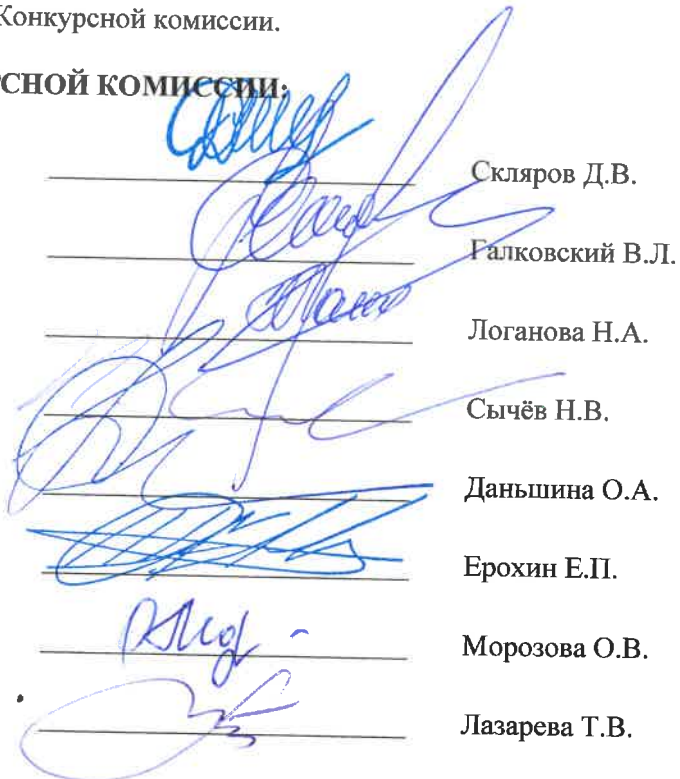 Конкурсной комиссии.
РСНОЙ КОМИССИИ:
Скляров Д.В.
Галковский В.Л.
Логанова Н.А.
Сычёв Н.В.
Даньшина О.А.
Ерохин Е.П.
Морозова О.В.
Лазарева Т.В.